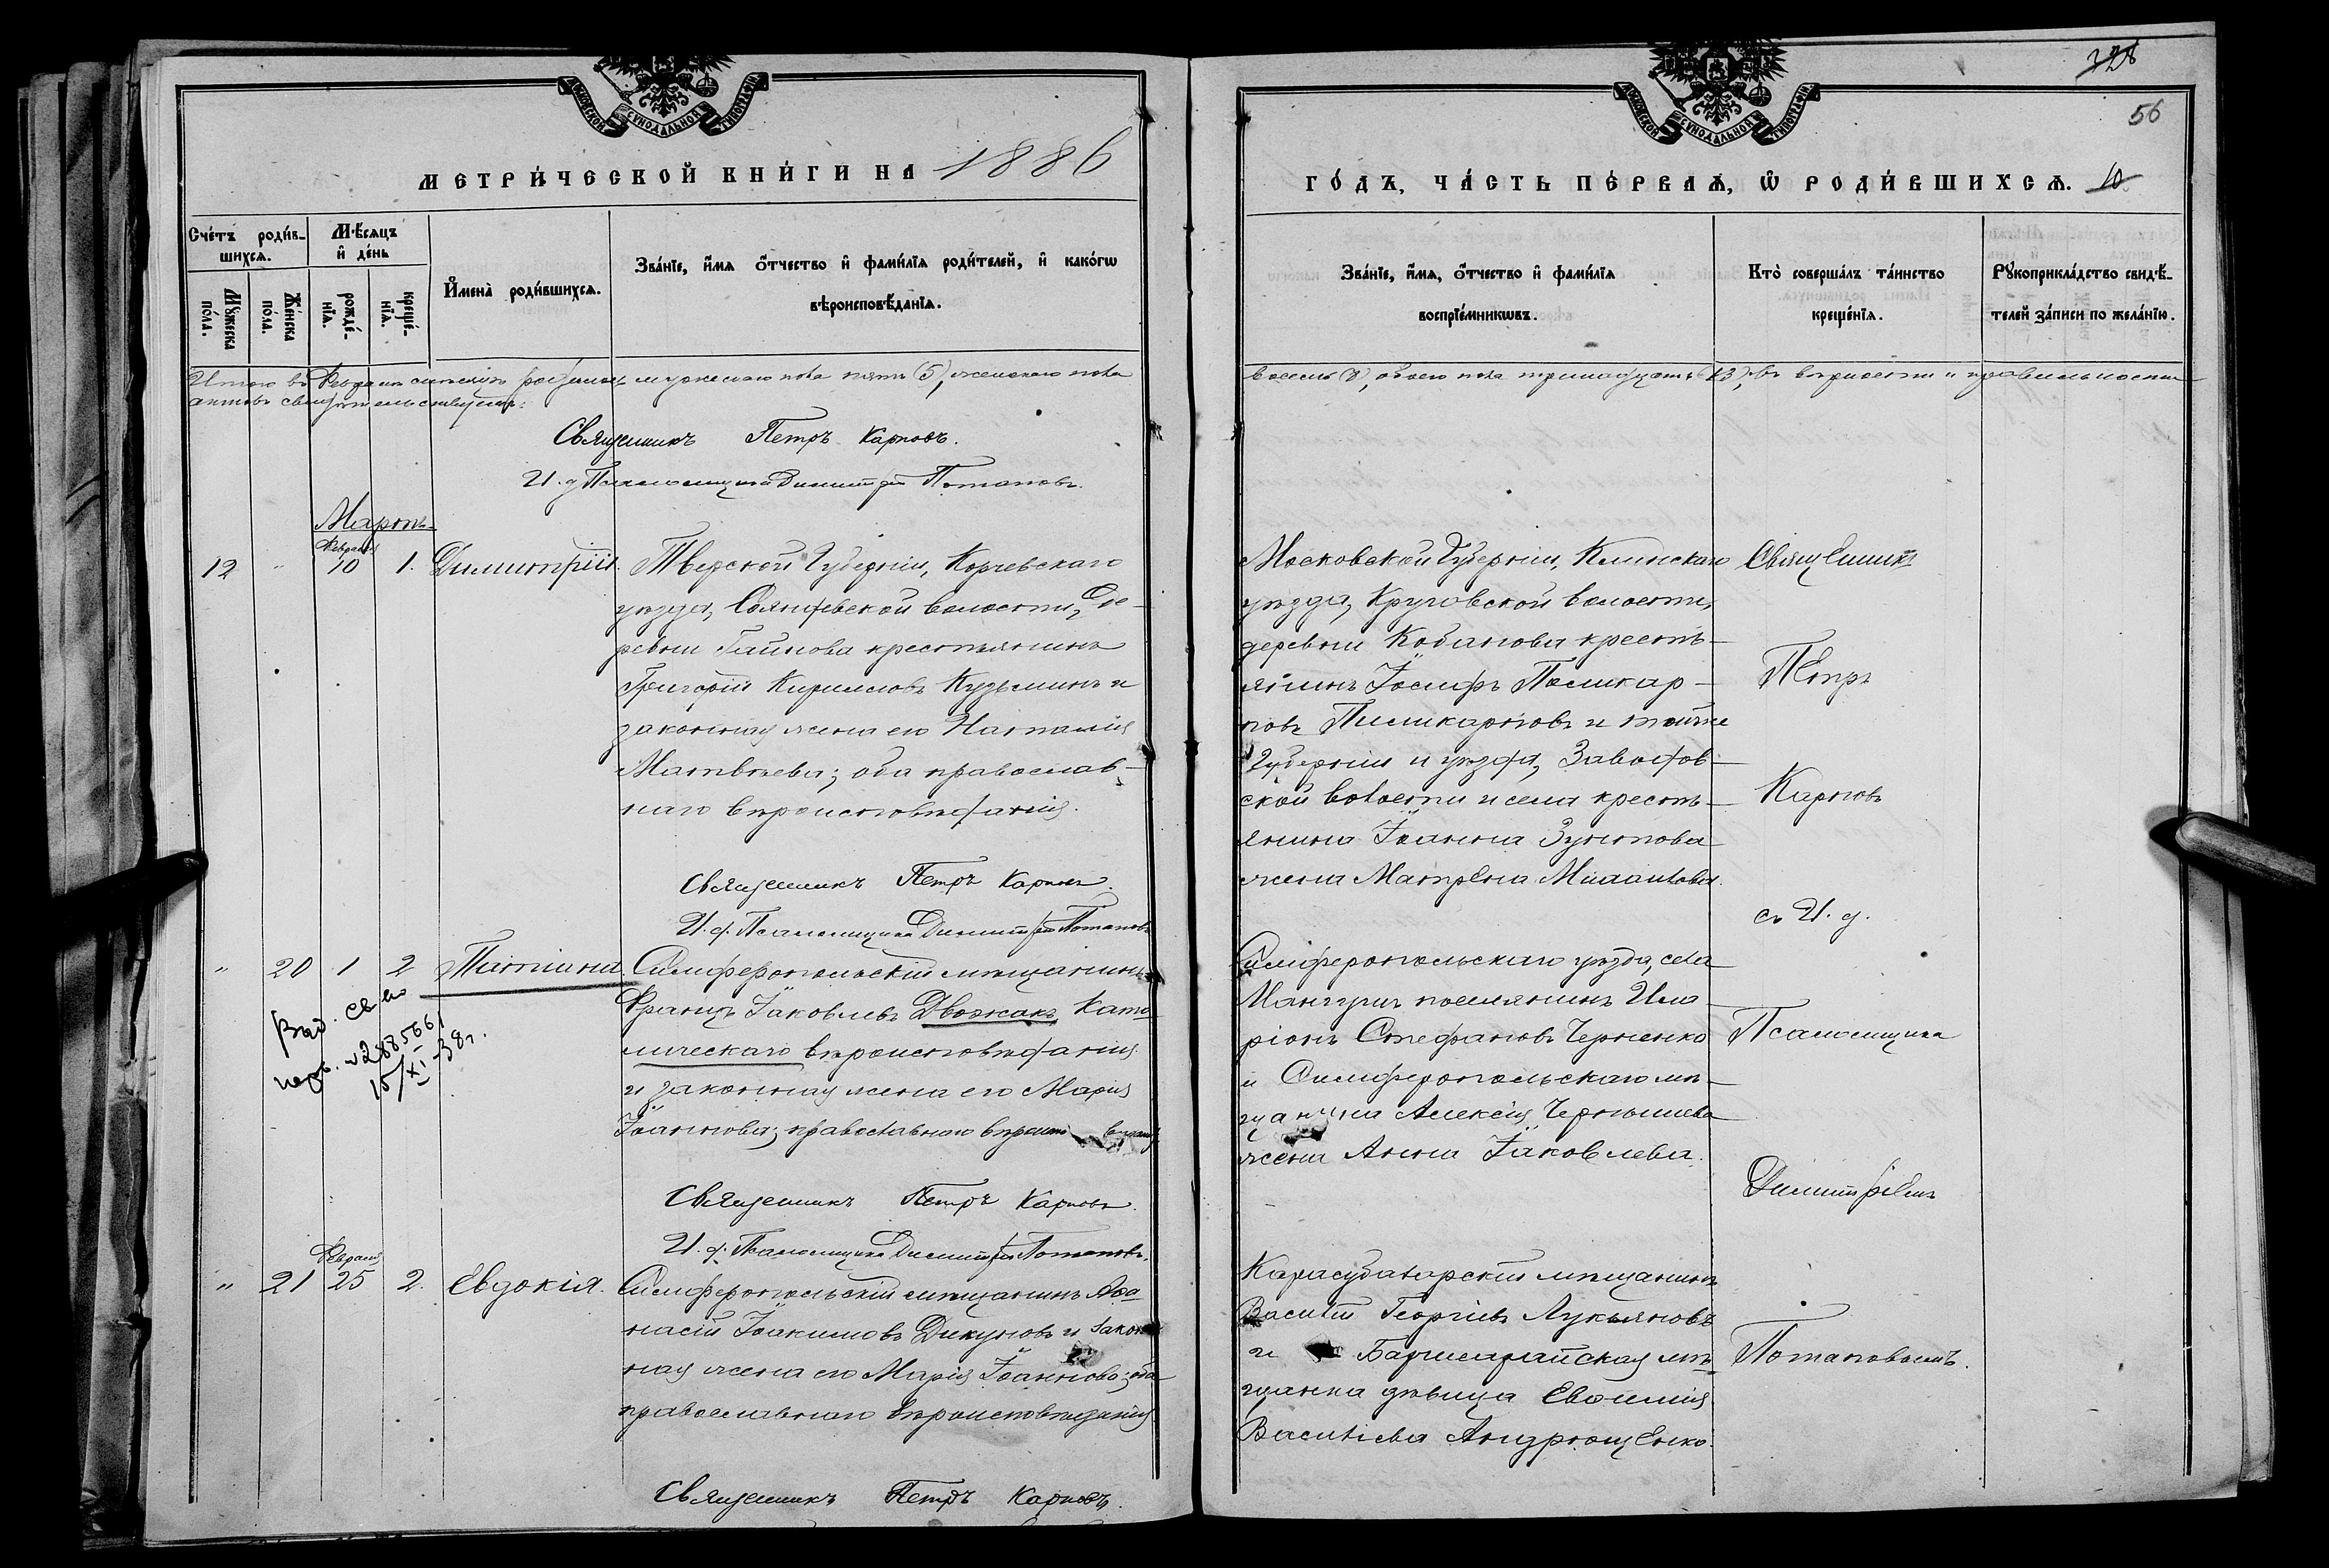 МОСКОВСКОЙ СѴНОДАЛЬНОЙ ТИПОГРАФІИ
МЕТРИ́ЧЕСКОЙ КНИ́ГИ НА 1886
Сче́тъ роди́вшихсѧ.
Мꙋ́жеска по́ла.
Же́нска по́ла.
Мѣ́сѧцъ и҆ де́нь
рожде́нїѧ.
креще́нїѧ.
И҆мена̀ роди́вшихсѧ.
Зва́нїе, и҆́мѧ ѻ҆́тчество и҆ фами́лїѧ роди́телей, и҆ како́гѡ
вѣроисповѣ́данїѧ.
Итого въ Февралѣ мѣсяцѣ родилось мужескаго пола пять (5), женскаго пола
актовъ свидѣтельствуемъ:
Священникъ Петръ Карповъ.
И. д Псаломщика Димитрій Потаповъ.
Мартъ
Февраля
12 " 10 1. Димитрій. Тверской Губерніи, Корчевскаго
уѣзда, волости, де-
ревни крестьянинъ
Григорій Кирилловъ Кузьминъ и
законная жена его Наталія
Матвѣева; оба православ-
наго вѣроисповѣданія.
Священникъ Петръ Карповъ.
И. д. Псаломщика Димитрій Потаповъ
" 20 1 2 Татіана. Симферопольскій мѣщанинъ
Францъ Іаковлевъ Двожакъ Като-
лическаго вѣроисповѣданія
и законная жена его Марія
Іоаннова; православнаго
Выд. св. во
№ 2885661
15/XI-38 г.
Священникъ Петръ Карповъ.
И. д. Псаломщика Димитрій Потаповъ.
Февраля
" 21 25 2. Евдокія. Симферопольскій мѣщанинъ Аѳа-
насій Іоакимовъ Дикуновъ и закон-
ная жена его Марія Іоаннова; оба
православнаго вѣроисповѣданія
Священникъ Петръ Карповъ.
328
56
МОСКОВСКОЙ СѴНОДАЛЬНОЙ ТИПОГРАФІИ
ГО́ДЪ, ЧА́СТЬ ПЕ́РВАѦ, Ѽ РОДИ́ВШИХСѦ. 10
Зва́нїе, и҆́мѧ, ѻ҆́тчество и҆ фами́лїѧ
воспрїе́мникѡвъ.
Кто̀ соверша́лъ та́инство
креще́нїѧ.
Рꙋкоприкла́дство свидѣ́-
телей за́писи по жела́нїю.
восемь (8), обоего пола тринадцать (13), въ вѣрности и правильности
Московской Губерніи, Клинскаго
уѣзда, Круговской волости,
деревни Кобанова кресть-
янинъ Іосифъ Поликар-
повъ Поликарповъ и той же
Губерніи и уѣзда, Заводов-
ской волости и села кресть-
янина Іоанна
жена Матрена
Симферопольскаго уѣзда, села
Мангушъ поселянинъ Ила-
ріонъ Стефановъ Черненко
и Симферопольскаго мѣ-
щанина Алексія Чернышева
жена Анна Іаковлева.
Карасубазарскій мѣщанинъ
Василій Георгіевъ Лукьяновъ
и Бахчисарайская мѣ-
щанка дѣвица Евѳимія
Василіева Андрющенко.
Священникъ
Петръ
Карповъ
съ И. д.
Псаломщика
Димитріемъ
Потаповымъ.